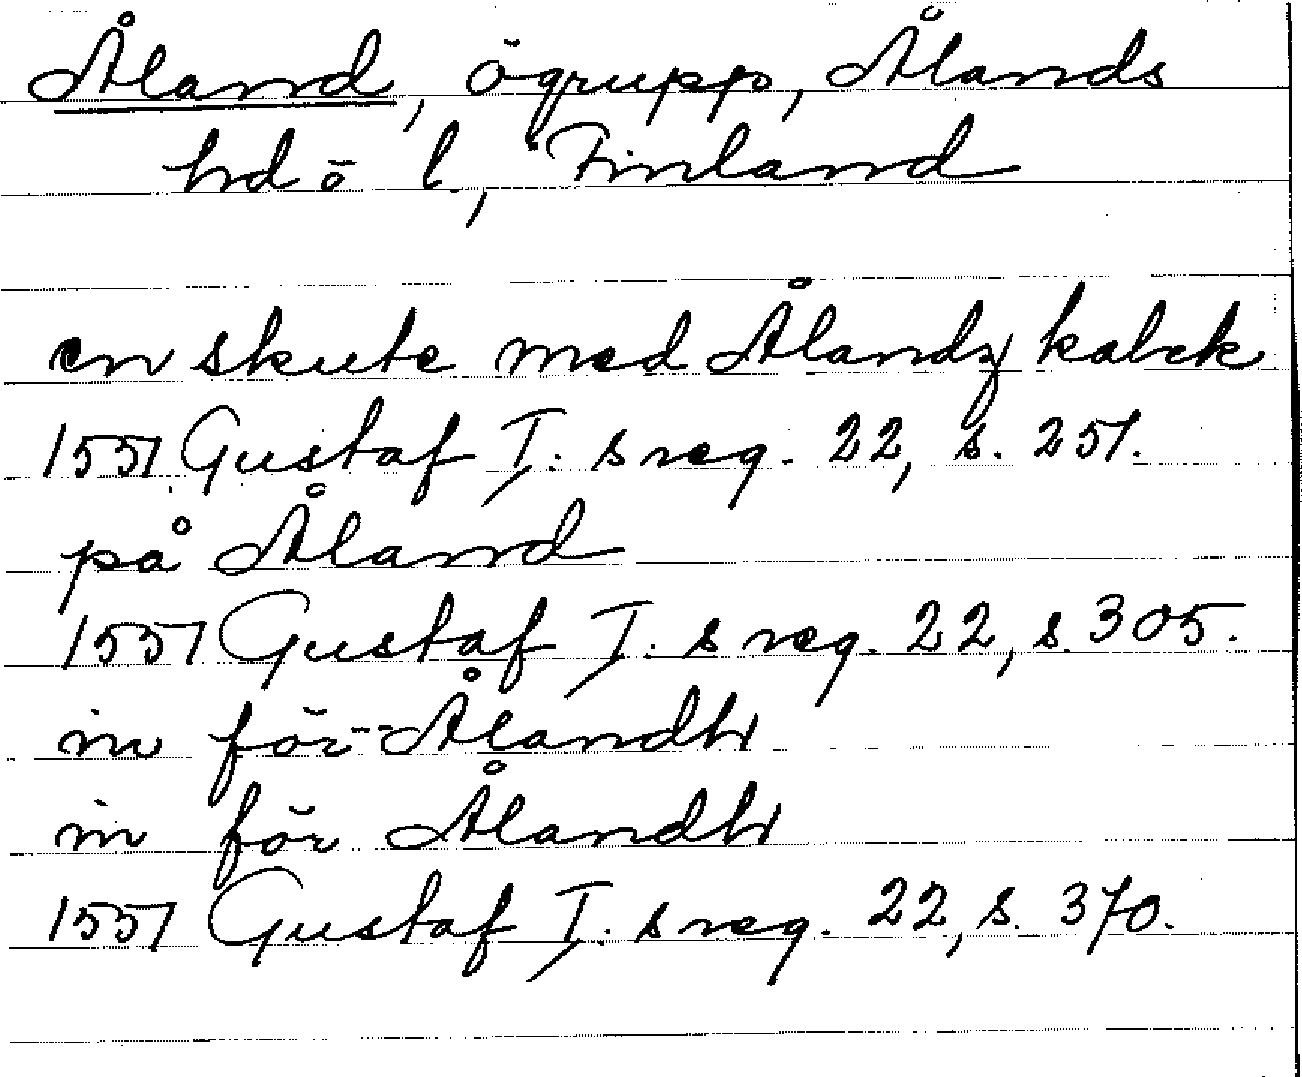 Åland, ögrupp, Ålands
hd o l., Finland
en skute med Ålandz kalck
1551 Gustaf I. s reg. 22, s. 251.
på Åland
1551 Gustaf I. s reg. 22, s. 305.
in för Ålandh
in för Ålandh
1551 Gustaf I. s reg. 22, s. 370.